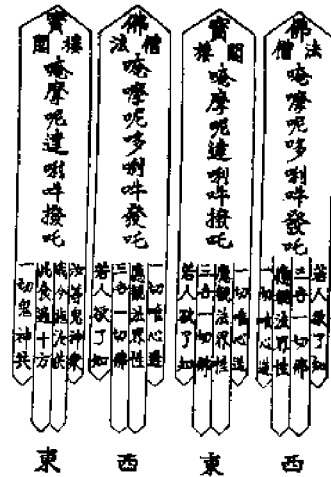 佛
法
僧
唵摩呢哆唎吽發吒
若人欲了知
三世一切佛
應觀法界性
一切唯心造
西
寶
閣
樓
唵摩呢達唎吽撥吒
一切唯心造
應觀法界性
三世一切佛
若人欲了知
東
佛
僧
法
唵摩呢哆唎吽發吒
一切唯心造
應觀法界性
三世一切佛
若人欲了知
西
寶
樓
閣
唵摩呢達唎吽撥吒
汝等鬼神眾
我今施汝供
此食遍十方
一切鬼神共
東